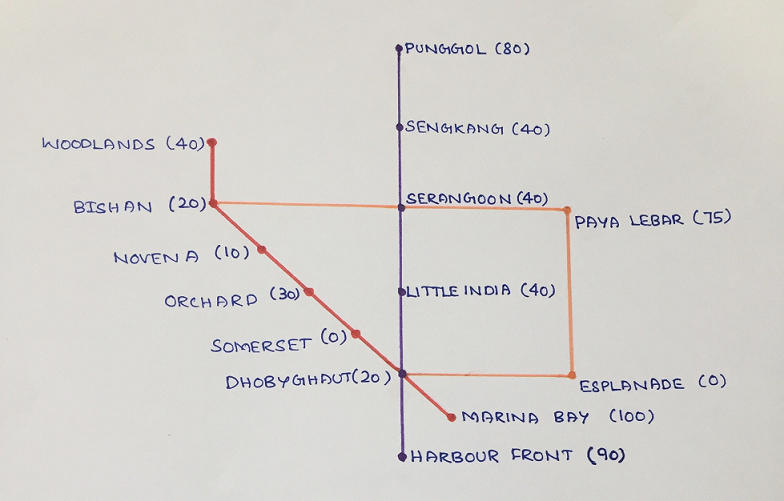 PUNGGOL (80)
SENGKANG (40)
WOODLANDS (40)
SERANGOON (40)
BISHAN (20)
PAYA LEBAR (75)
NOVENA (10)
ORCHARD (30)
LITTLE INDIA (40)
SOMERSET (0)
DHOBYGHAUT (20)
ESPLANADE (0)
MARINA BAY (100)
HARBOUR FRONT (90)